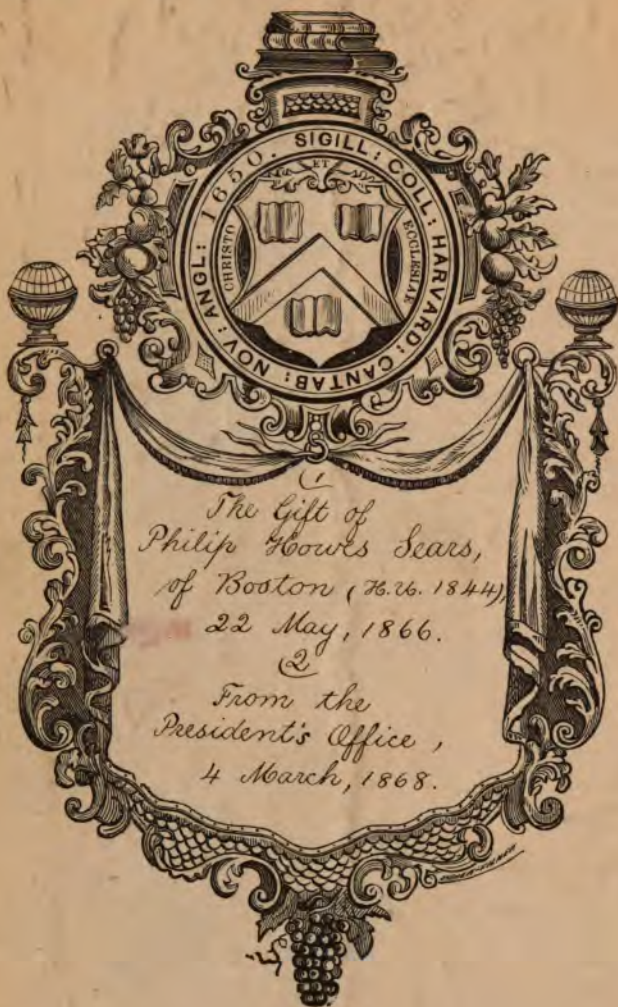 SIGILL: COLL: HARVARD: CANTAB: NOV: ANGL: 1650.
CHRISTO
ET
ECCLESIAE
(1
The Gift of
Philip Howes Sears,
of Boston (H.U. 1844),
22 May, 1866.
(2
From the
President's Office,
4 March, 1868.